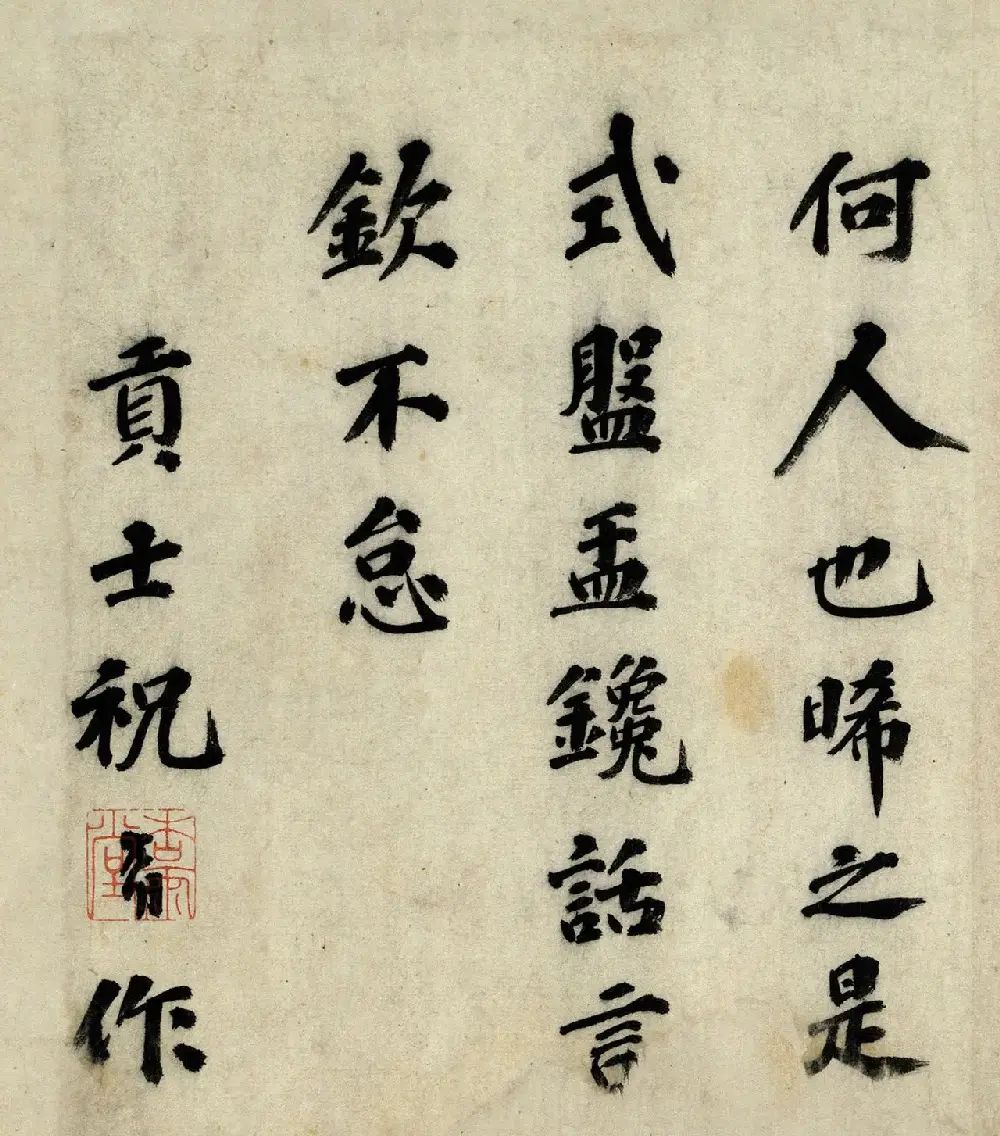 何人也晞之是
式盤盂鑱話言
欽不怠
貢士祝允明作